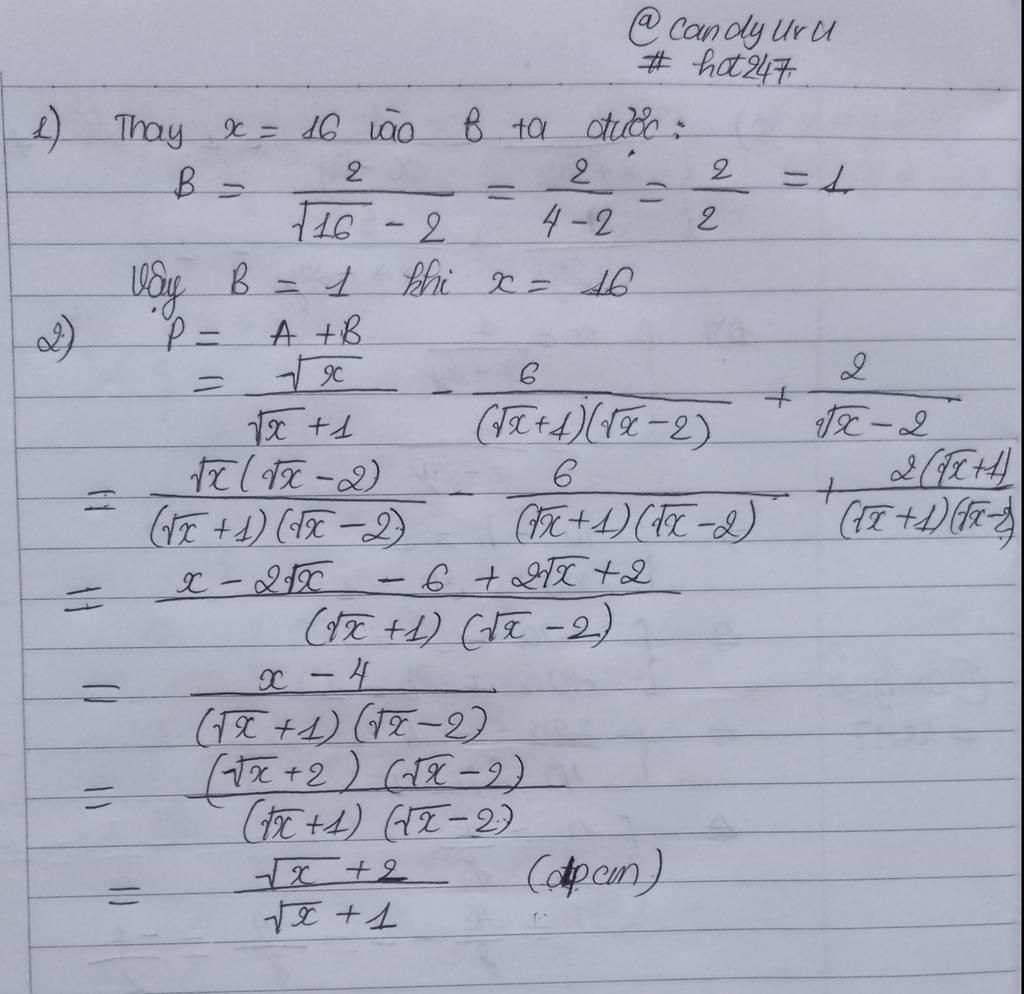 @candyuru
# hot247
1) Thay x = 16 vào B ta được:
B = 2/(√16 - 2) = 2/(4-2) = 2/2 = 1
Vậy B = 1 khi x = 16
2) P = A + B
= √x/(√x + 1) - 6/((√x+1)(√x-2)) + 2/(√x-2)
= √x(√x-2)/((√x+1)(√x-2)) - 6/((√x+1)(√x-2)) + 2(√x+1)/((√x+1)(√x-2))
= (x - 2√x - 6 + 2√x + 2)/((√x+1)(√x-2))
= (x - 4)/((√x+1)(√x-2))
= (√x+2)(√x-2)/((√x+1)(√x-2))
= (√x+2)/(√x+1) (đpcm)